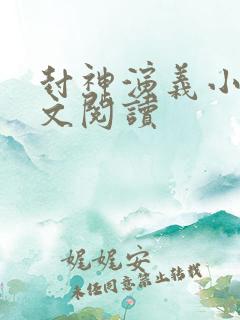 封神演义小
文閱讀
娓娓安
未经同意禁止转载